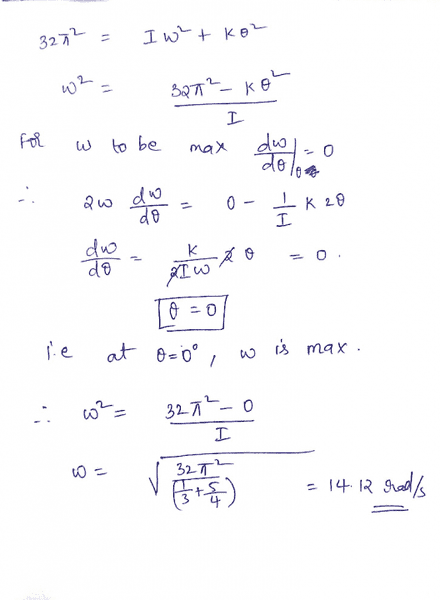 32π² = Iω² + Kθ²
ω² = (32π² - Kθ²) / I
For ω to be max dω/dθ| = 0
∴ 2ω dω/dθ = 0 - 1/I K 2θ
dω/dθ = K/(2Iω) 2 θ = 0.
θ = 0
i.e at θ=0°, ω is max.
∴ ω² = (32π² - 0) / I
ω = √(32π² / (1/3 + 5/4)) = 14.12 rad/s